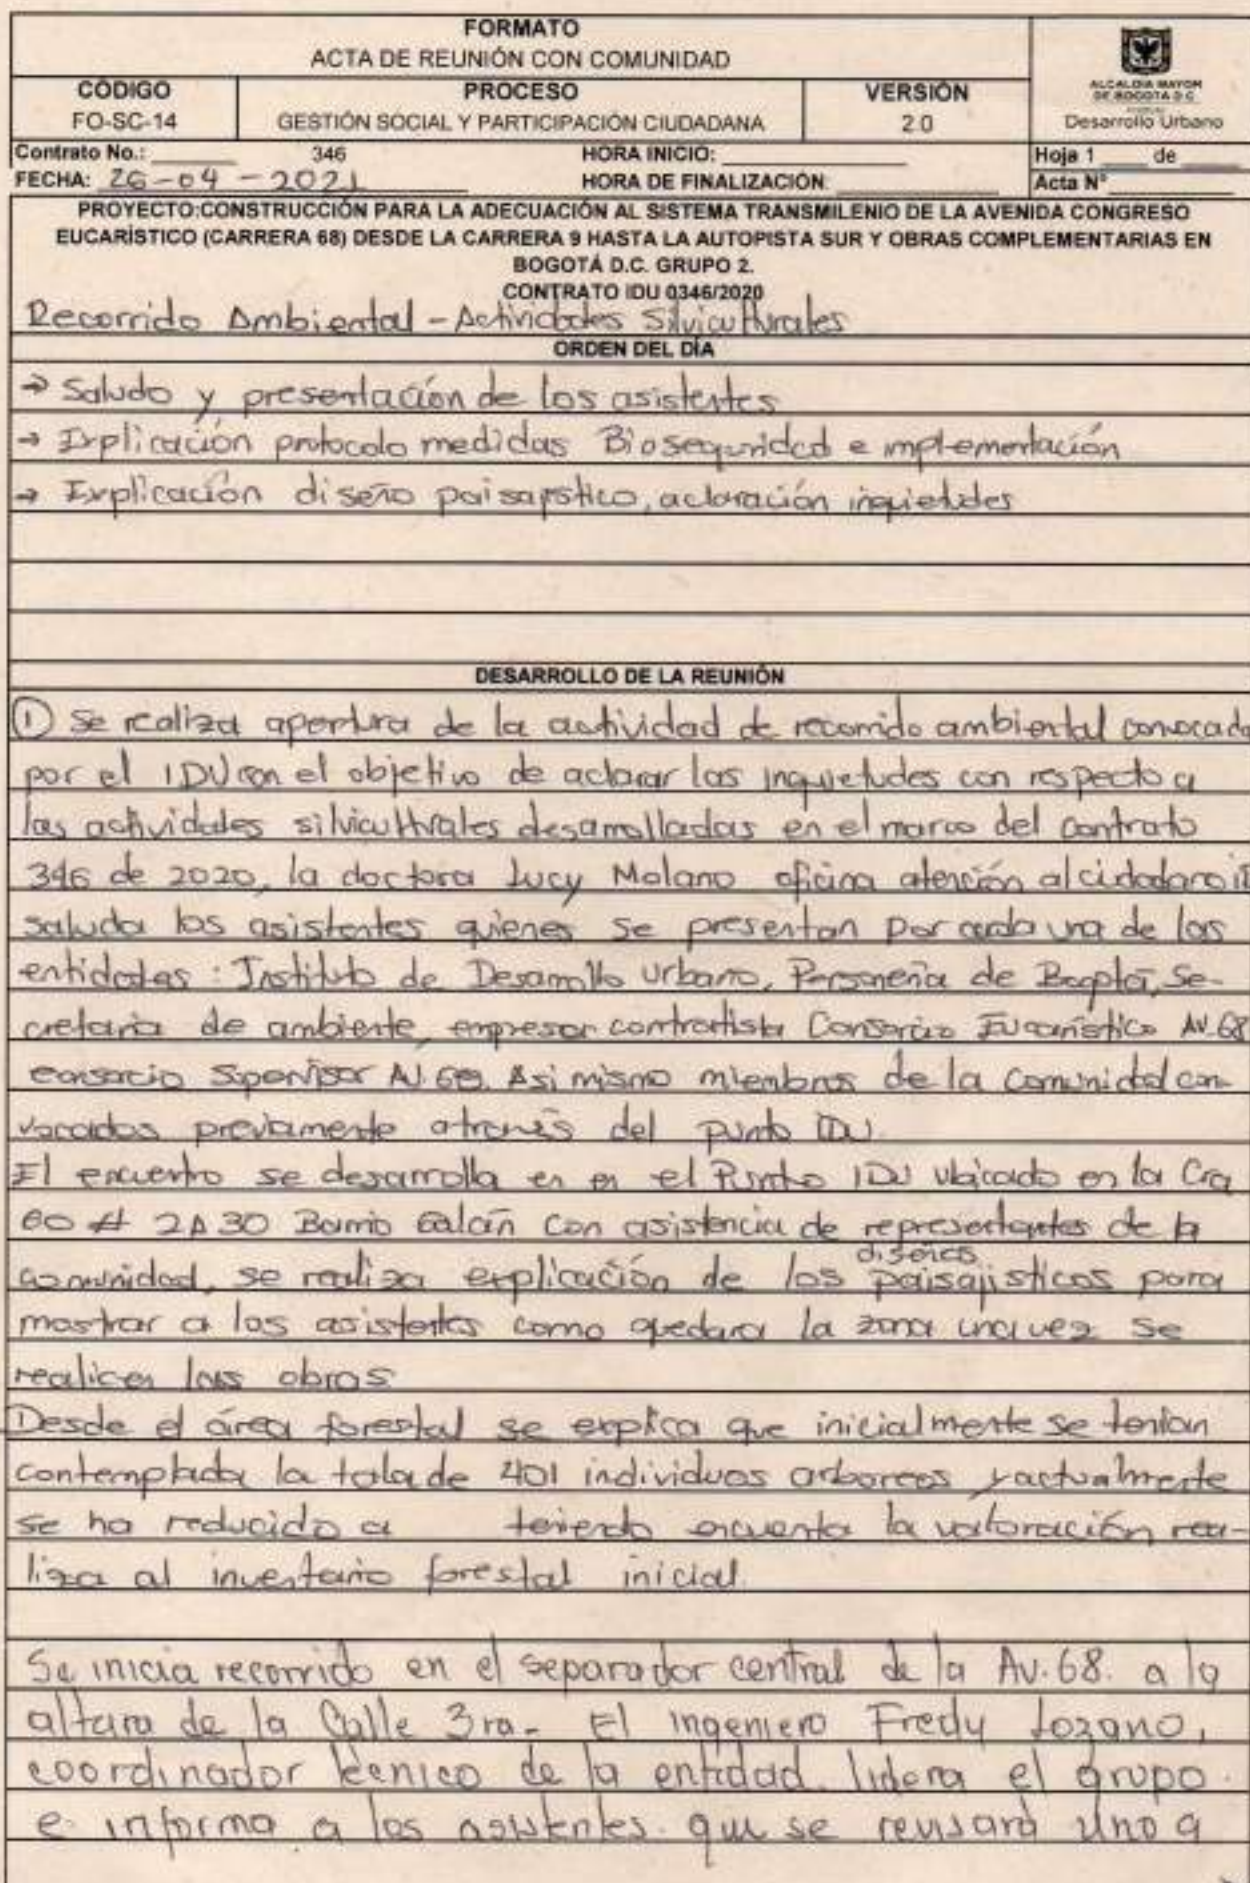 FORMATO
ACTA DE REUNIÓN CON COMUNIDAD
CÓDIGO
FO-SC-14
PROCESO
GESTIÓN SOCIAL Y PARTICIPACIÓN CIUDADANA
VERSIÓN
2.0
ALCALDÍA MAYOR
DE BOGOTÁ D.C.
Desarrollo Urbano
Contrato No.: 346
HORA INICIO:
Hoja 1 de
FECHA: 26-04-2021
HORA DE FINALIZACIÓN:
Acta N°
PROYECTO:CONSTRUCCIÓN PARA LA ADECUACIÓN AL SISTEMA TRANSMILENIO DE LA AVENIDA CONGRESO
EUCARÍSTICO (CARRERA 68) DESDE LA CARRERA 9 HASTA LA AUTOPISTA SUR Y OBRAS COMPLEMENTARIAS EN
BOGOTÁ D.C. GRUPO 2.
CONTRATO IDU 0346/2020
Recorrido Ambiental - Actividades Silviculturales
ORDEN DEL DÍA
→ Saludo y presentación de los asistentes
→ Explicación protocolo medidas Bioseguridad e implementación
→ Explicación diseño paisajístico, aclaración inquietudes
DESARROLLO DE LA REUNIÓN
① Se realiza apertura de la actividad de recorrido ambiental convocado
por el IDU con el objetivo de aclarar las inquietudes con respecto a
las actividades silviculturales desarrolladas en el marco del contrato
346 de 2020, la doctora Lucy Molano oficina atención al ciudadano
saluda los asistentes quienes se presentan por cada una de las
entidades: Instituto de Desarrollo Urbano, Personería de Bogotá, Se-
cretaria de ambiente, empresa contratista Consorcio Eucarístico AV.68
consorcio Supervisor AV.68. Asi mismo miembros de la Comunidad con-
vocados previamente através del punto IDU.
El encuentro se desarrolla en en el Punto IDU ubicado en la Cra
60 # 2A 30 Barrio Galán con asistencia de representantes de la
comunidad, se realiza explicación de los diseños paisajisticos para
mostrar a los asistentes como quedara la zona una vez se
realicen las obras
Desde el área forestal se explica que inicialmente se tenian
contemplada la tala de 401 individuos arboreos y actualmente
se ha reducido a teniendo encuenta la valoración rea-
liza al inventario forestal inicial.
Se inicia recorrido en el separador central de la Av.68. a la
altura de la Calle 3ra- El ingeniero Fredy Lozano,
coordinador técnico de la entidad. lidera el grupo.
e informa a los asistentes. que se revisará uno a